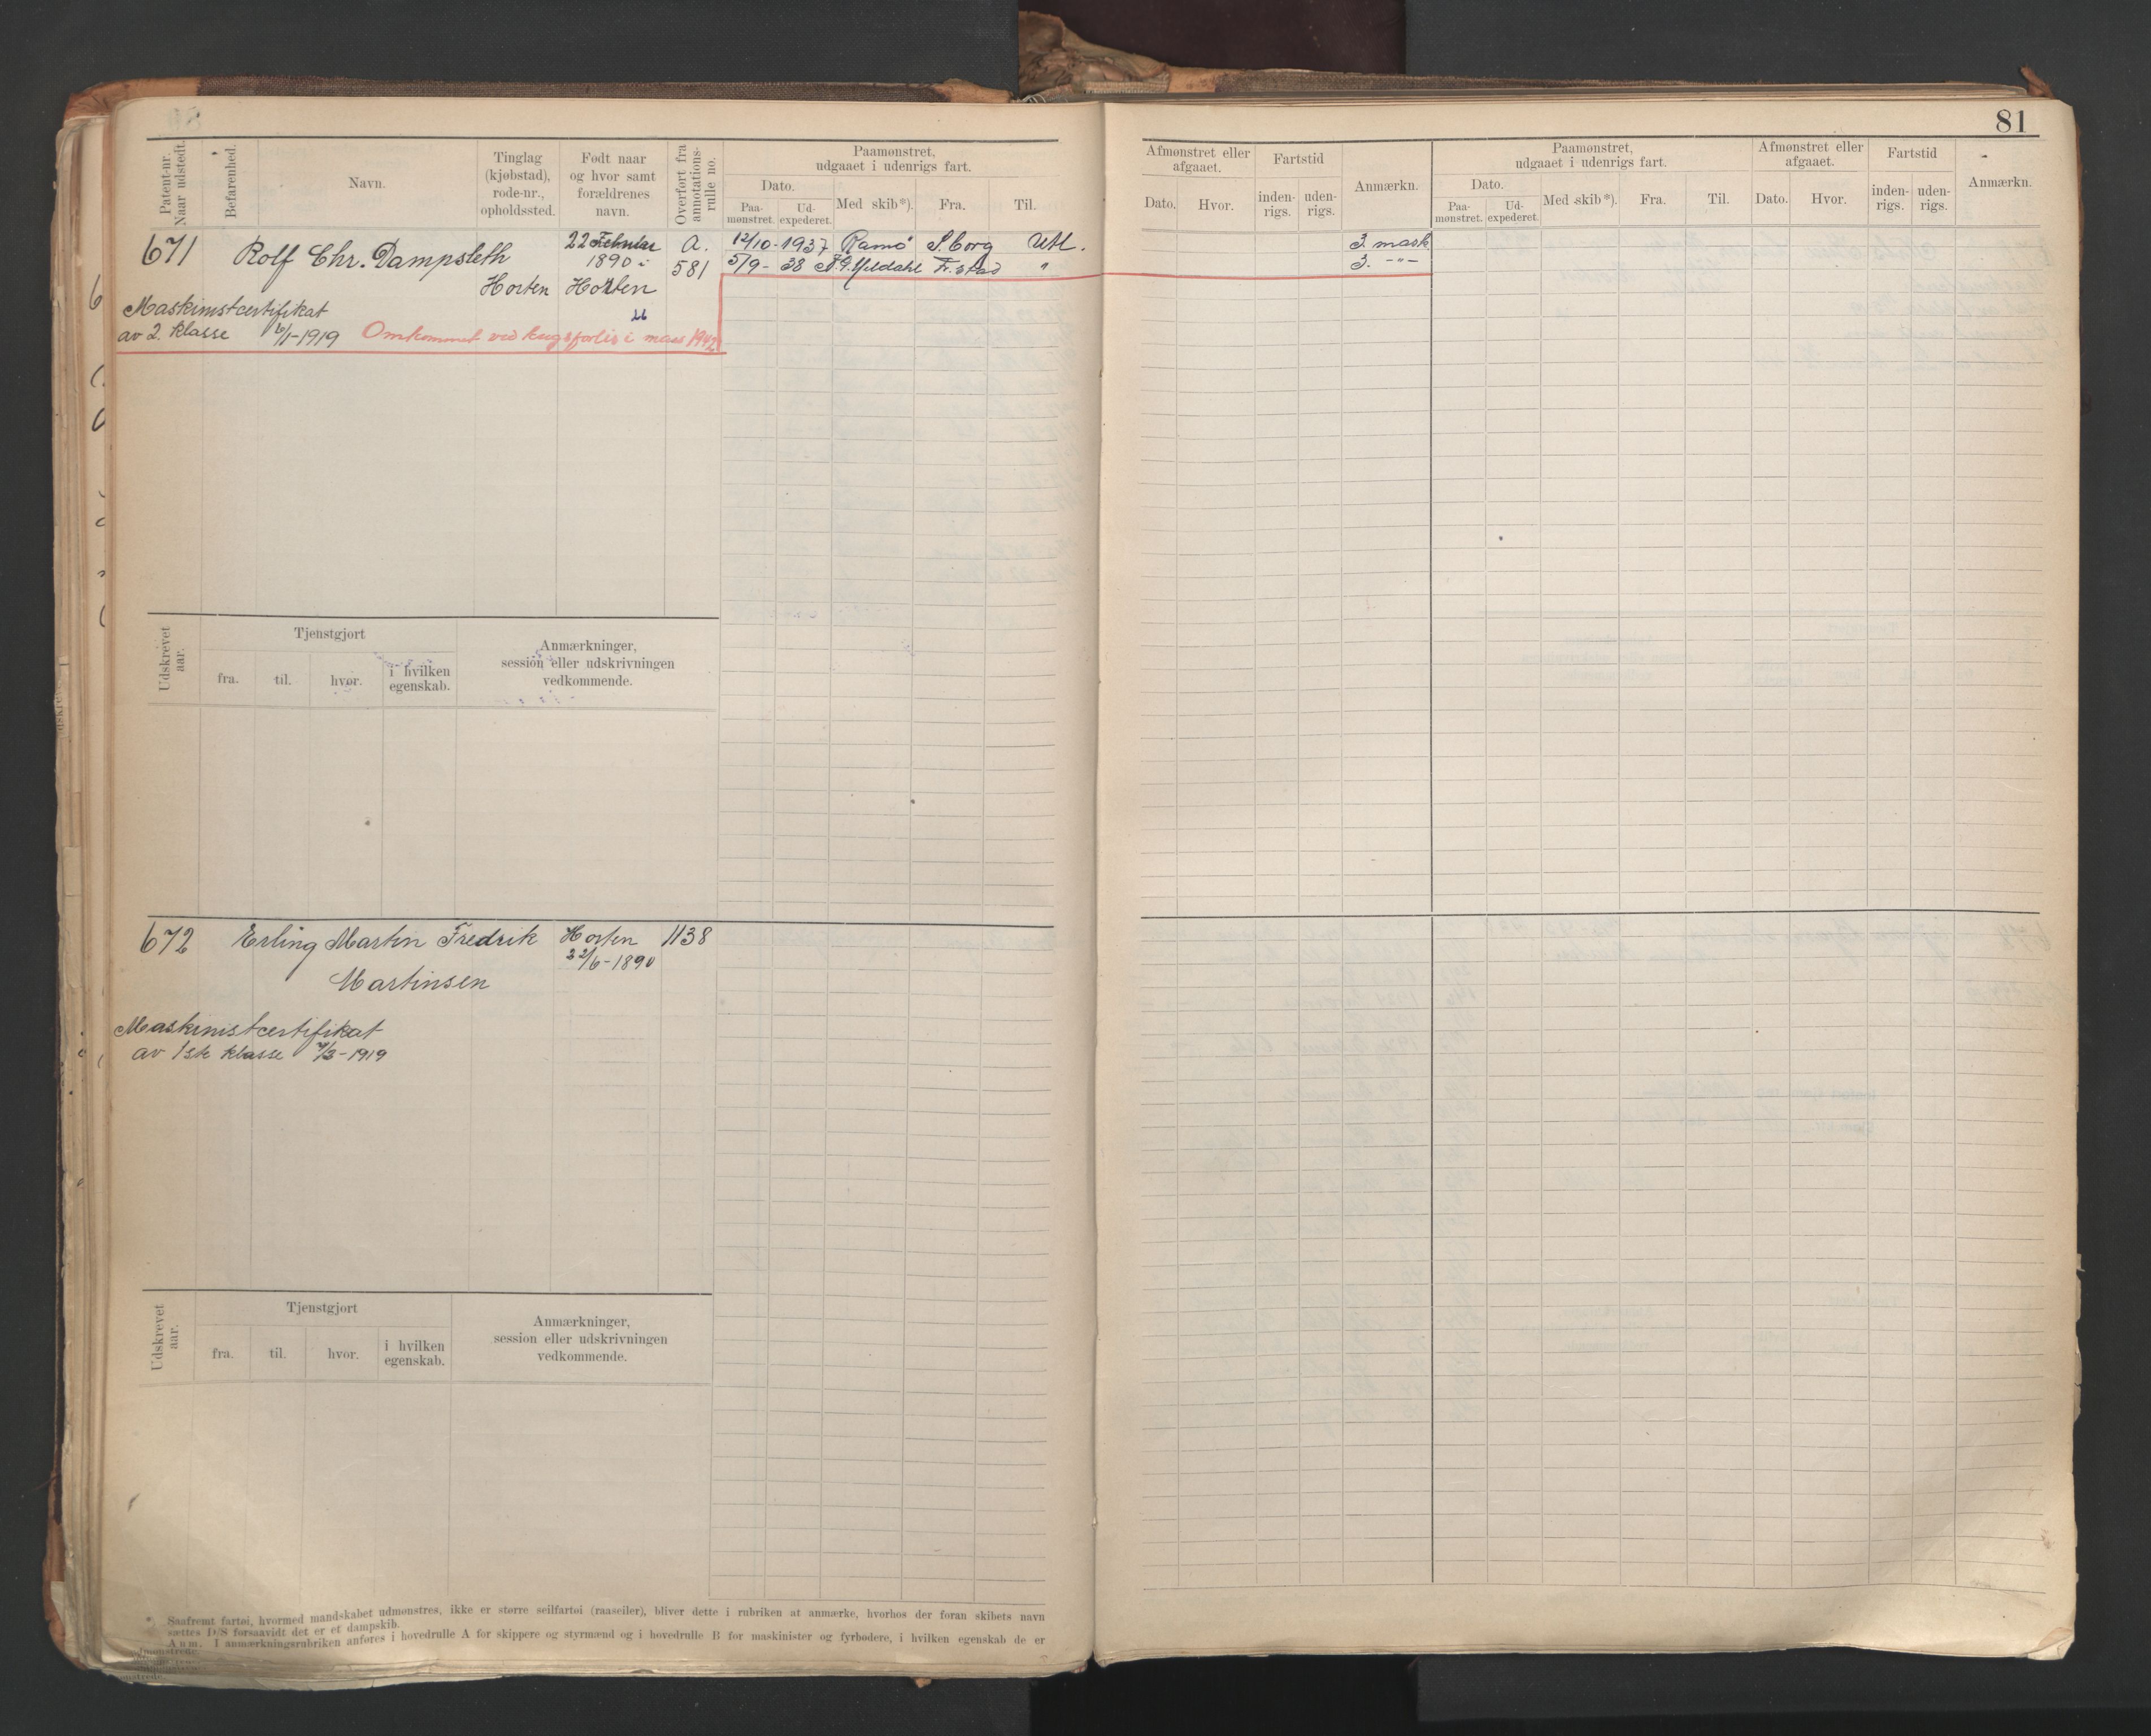 81
Patent-nr. Naar udstedt.
Befarenhed.
Navn.
Tinglag (kjøbstad), rode-nr., opholdssted.
Født naar og hvor samt forældrenes navn.
Overført fra annotations-rulle no.
Paamønstret, udgaaet i udenrigs fart.
Dato.
Paa-mønstret.
Ud-expederet.
Med skib*).
Fra.
Til.
Afmønstret eller afgaaet.
Dato.
Hvor.
Fartstid
inden-rigs.
uden-rigs.
Anmærkn.
Paamønstret, udgaaet i udenrigs fart.
Dato.
Paa-mønstret.
Ud-expederet.
Med skib*).
Fra.
Til.
Afmønstret eller afgaaet.
Dato.
Hvor.
Fartstid
inden-rigs.
uden-rigs.
Anmærkn.
671 Rolf Chr. Dampsleth 22 Februar 1890 A. 581
Horten Horten
12/10-1937 Ramö S.borg Utl. 3. mask
5/9-38 Fr.stad " 3. -"-
Maskinistcertifikat
av 2. klasse 6/1-1919 Omkommet ved krigsforlis i mars 1942
Udskrevet aar.
Tjenstgjort
fra.
til.
hvor.
i hvilken egenskab.
Anmærkninger, session eller udskrivningen vedkommende.
672 Erling Martin Fredrik Horten 1138
22/6-1890
Martinsen
Maskinistcertifikat
av 1ste klasse /3-1919
Udskrevet aar.
Tjenstgjort
fra.
til.
hvor.
i hvilken egenskab.
Anmærkninger, session eller udskrivningen vedkommende.
* Saafremt fartøi, hvormed mandskabet udmønstres, ikke er større seilfartøi (raaseiler), bliver dette i rubriken at anmærke, hvorhos der foran skibets navn
sættes D/S forsaavidt det er et dampskib.
Anm. I anmærkningsrubriken anføres i hovedrulle A for skippere og styrmænd og i hovedrulle B for maskinister og fyrbødere, i hvilken egenskab de er
udmønstrede.